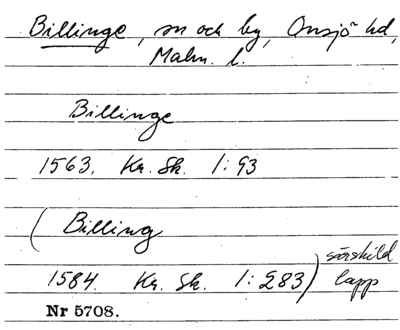 Billinge, sn och by, Onsjö hd,
Malm. l.
Billinge
1563. Kr. Sk. 1:93
(Billing
1584. Kr. Sk. 1:283) särskild lapp
Nr 5708.